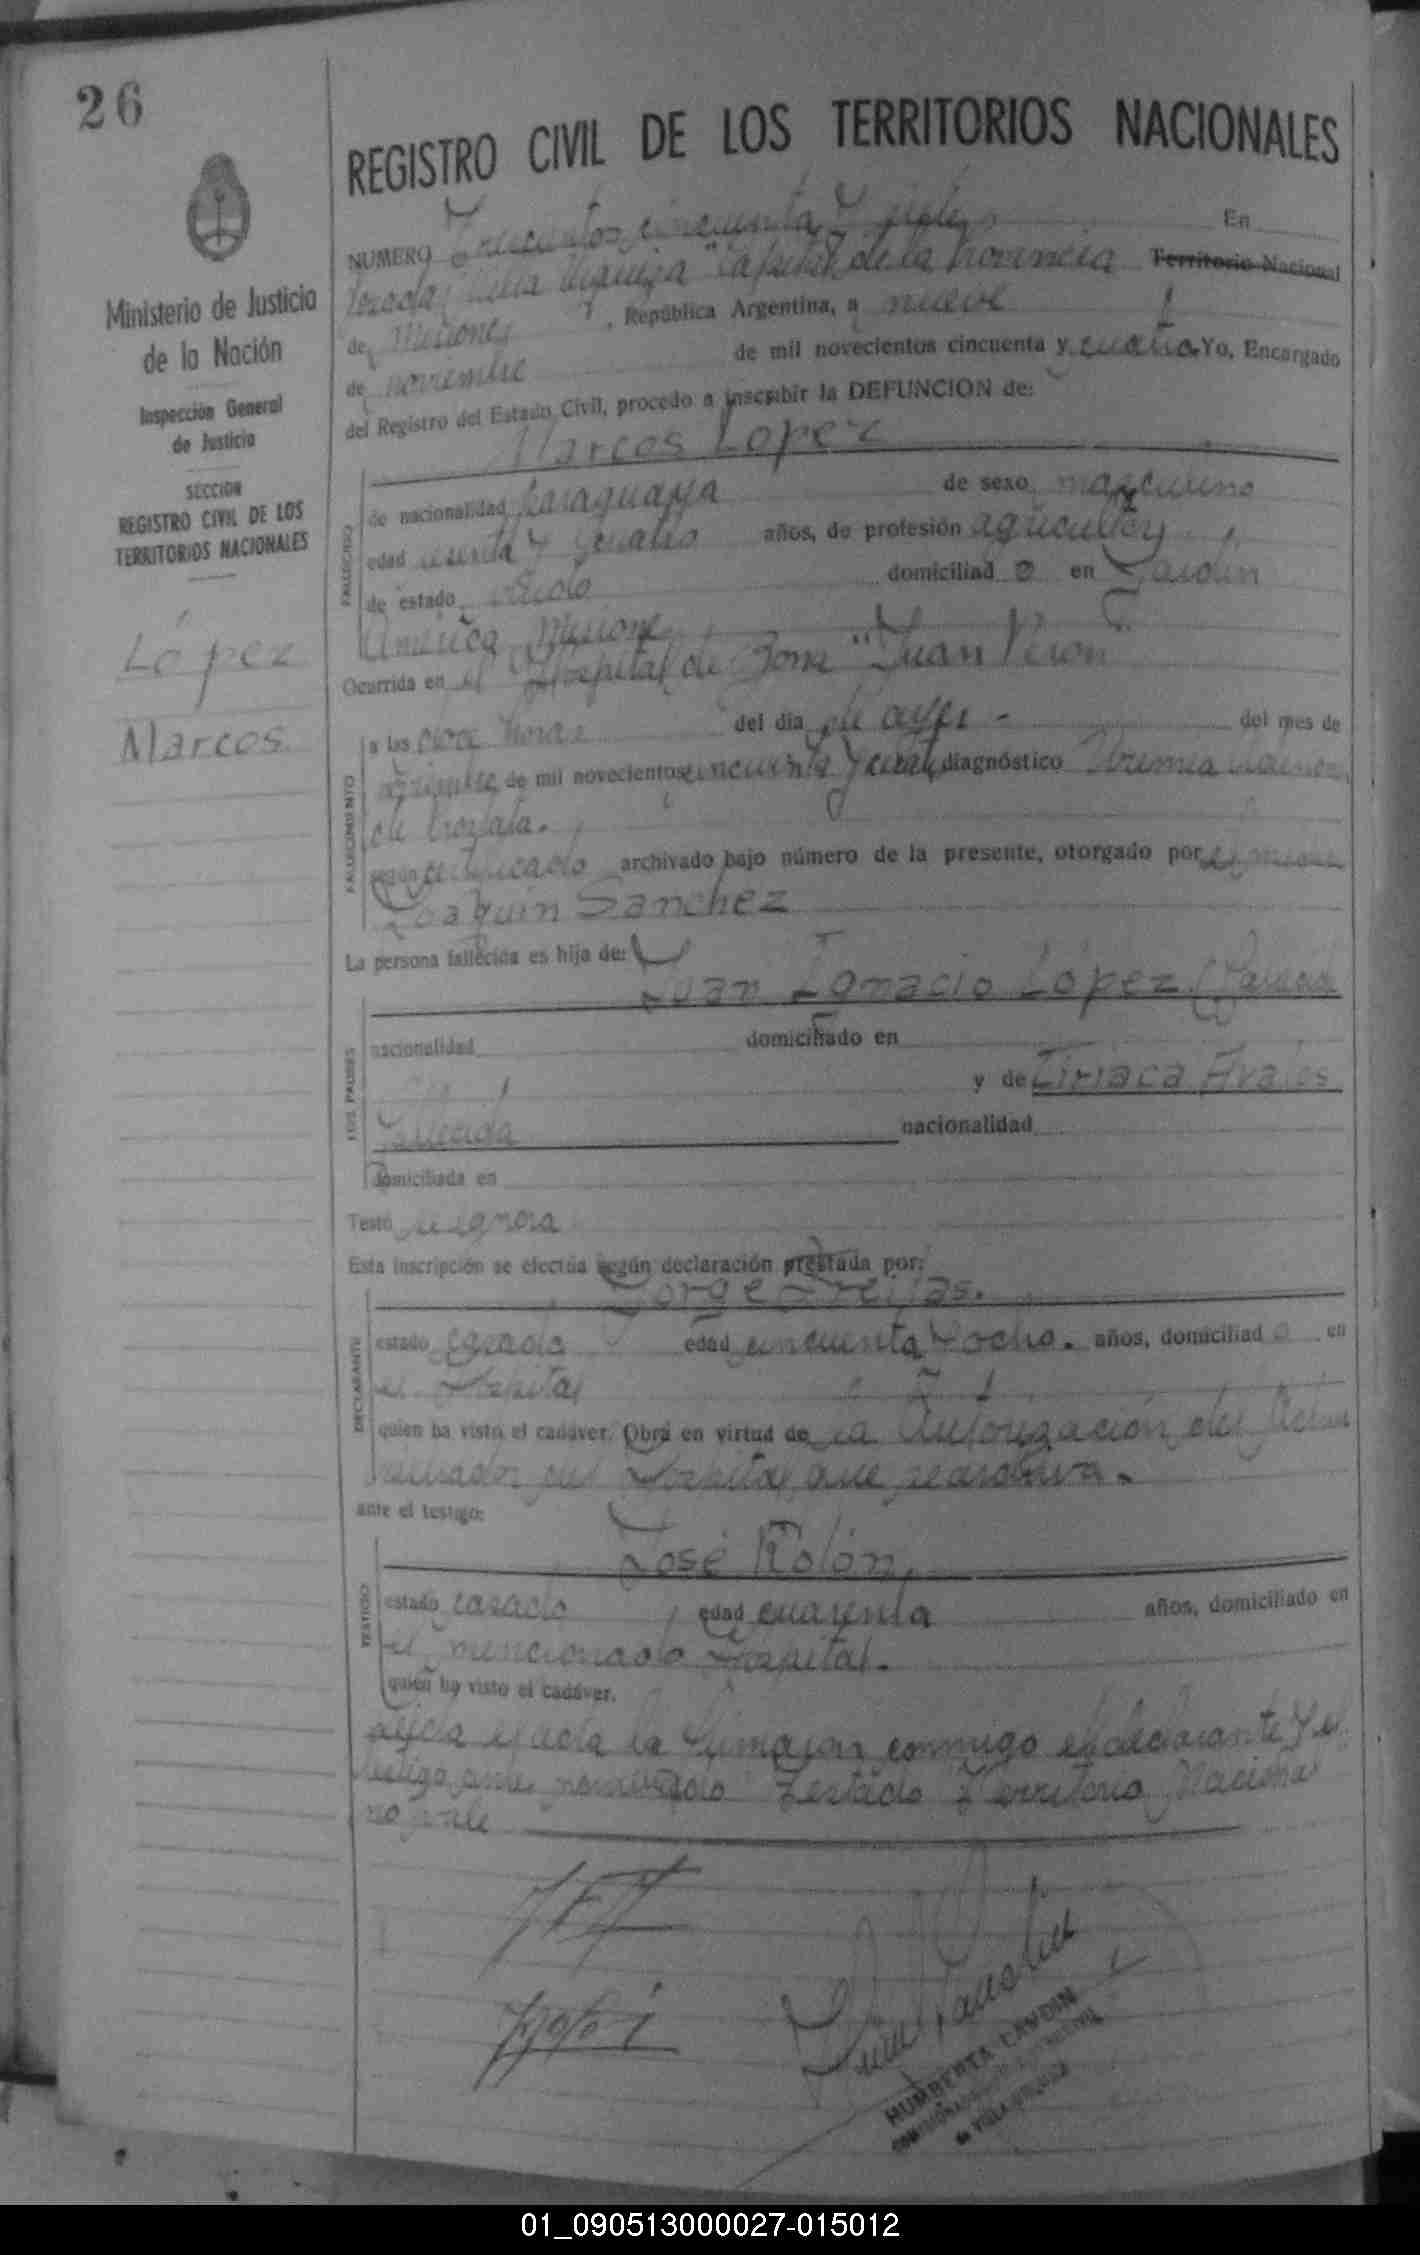 26
REGISTRO CIVIL DE LOS TERRITORIOS NACIONALES
Ministerio de Justicia
de la Nación
Inspección General
de Justicia
SECCION
REGISTRO CIVIL DE LOS
TERRITORIOS NACIONALES
López
Marcos
NUMERO Trescientos cincuenta y siete En
Posadas Villa Urquiza "Capital de la Provincia Territorio Nacional
de Misiones, República Argentina, a nueve
de noviembre de mil novecientos cincuenta y cuatro Yo, Encargado
del Registro del Estado Civil, procedo a inscribir la DEFUNCION de:
Marcos López
FALLECIDO
de nacionalidad paraguaya de sexo masculino
edad y años, de profesión agricultor
de estado viudo domiciliad o en Jardín
América Misiones
Ocurrida en el Hospital de Zona "Juan Perón"
FALLECIMIENTO
a las doce horas del día de ayer - del mes de
noviembre de mil novecientos cincuenta y cuatro diagnóstico Uremia
de próstata.
según certificado archivado bajo número de la presente, otorgado por el
Joaquín Sánchez
La persona fallecida es hija de:
Juan Ignacio López (Fallecido
LOS PADRES
nacionalidad domiciliado en
y de Ciriaca Avalos
Fallecida nacionalidad
domiciliada en
Testó se ignora
Esta inscripción se efectúa según declaración prestada por:
Jorge Freitas.
DECLARANTE
estado casado edad cincuenta y ocho. años, domiciliad o en
el Hospital
quien ha visto el cadáver. Obra en virtud de la Autorización del Admi
nistrador del Hospital que se archiva.
ante el testigo:
José Rolón,
TESTIGO
estado casado edad cuarenta años, domiciliado en
el mencionado Hospital.
quien ha visto el cadáver.
Leída el acta la firmaron conmigo el declarante y el
testigo antes nombrado Testado Territorio Nacional
no vale
HUMBERTA LANDIN
de VILLA URQUIZA
01_090513000027-015012